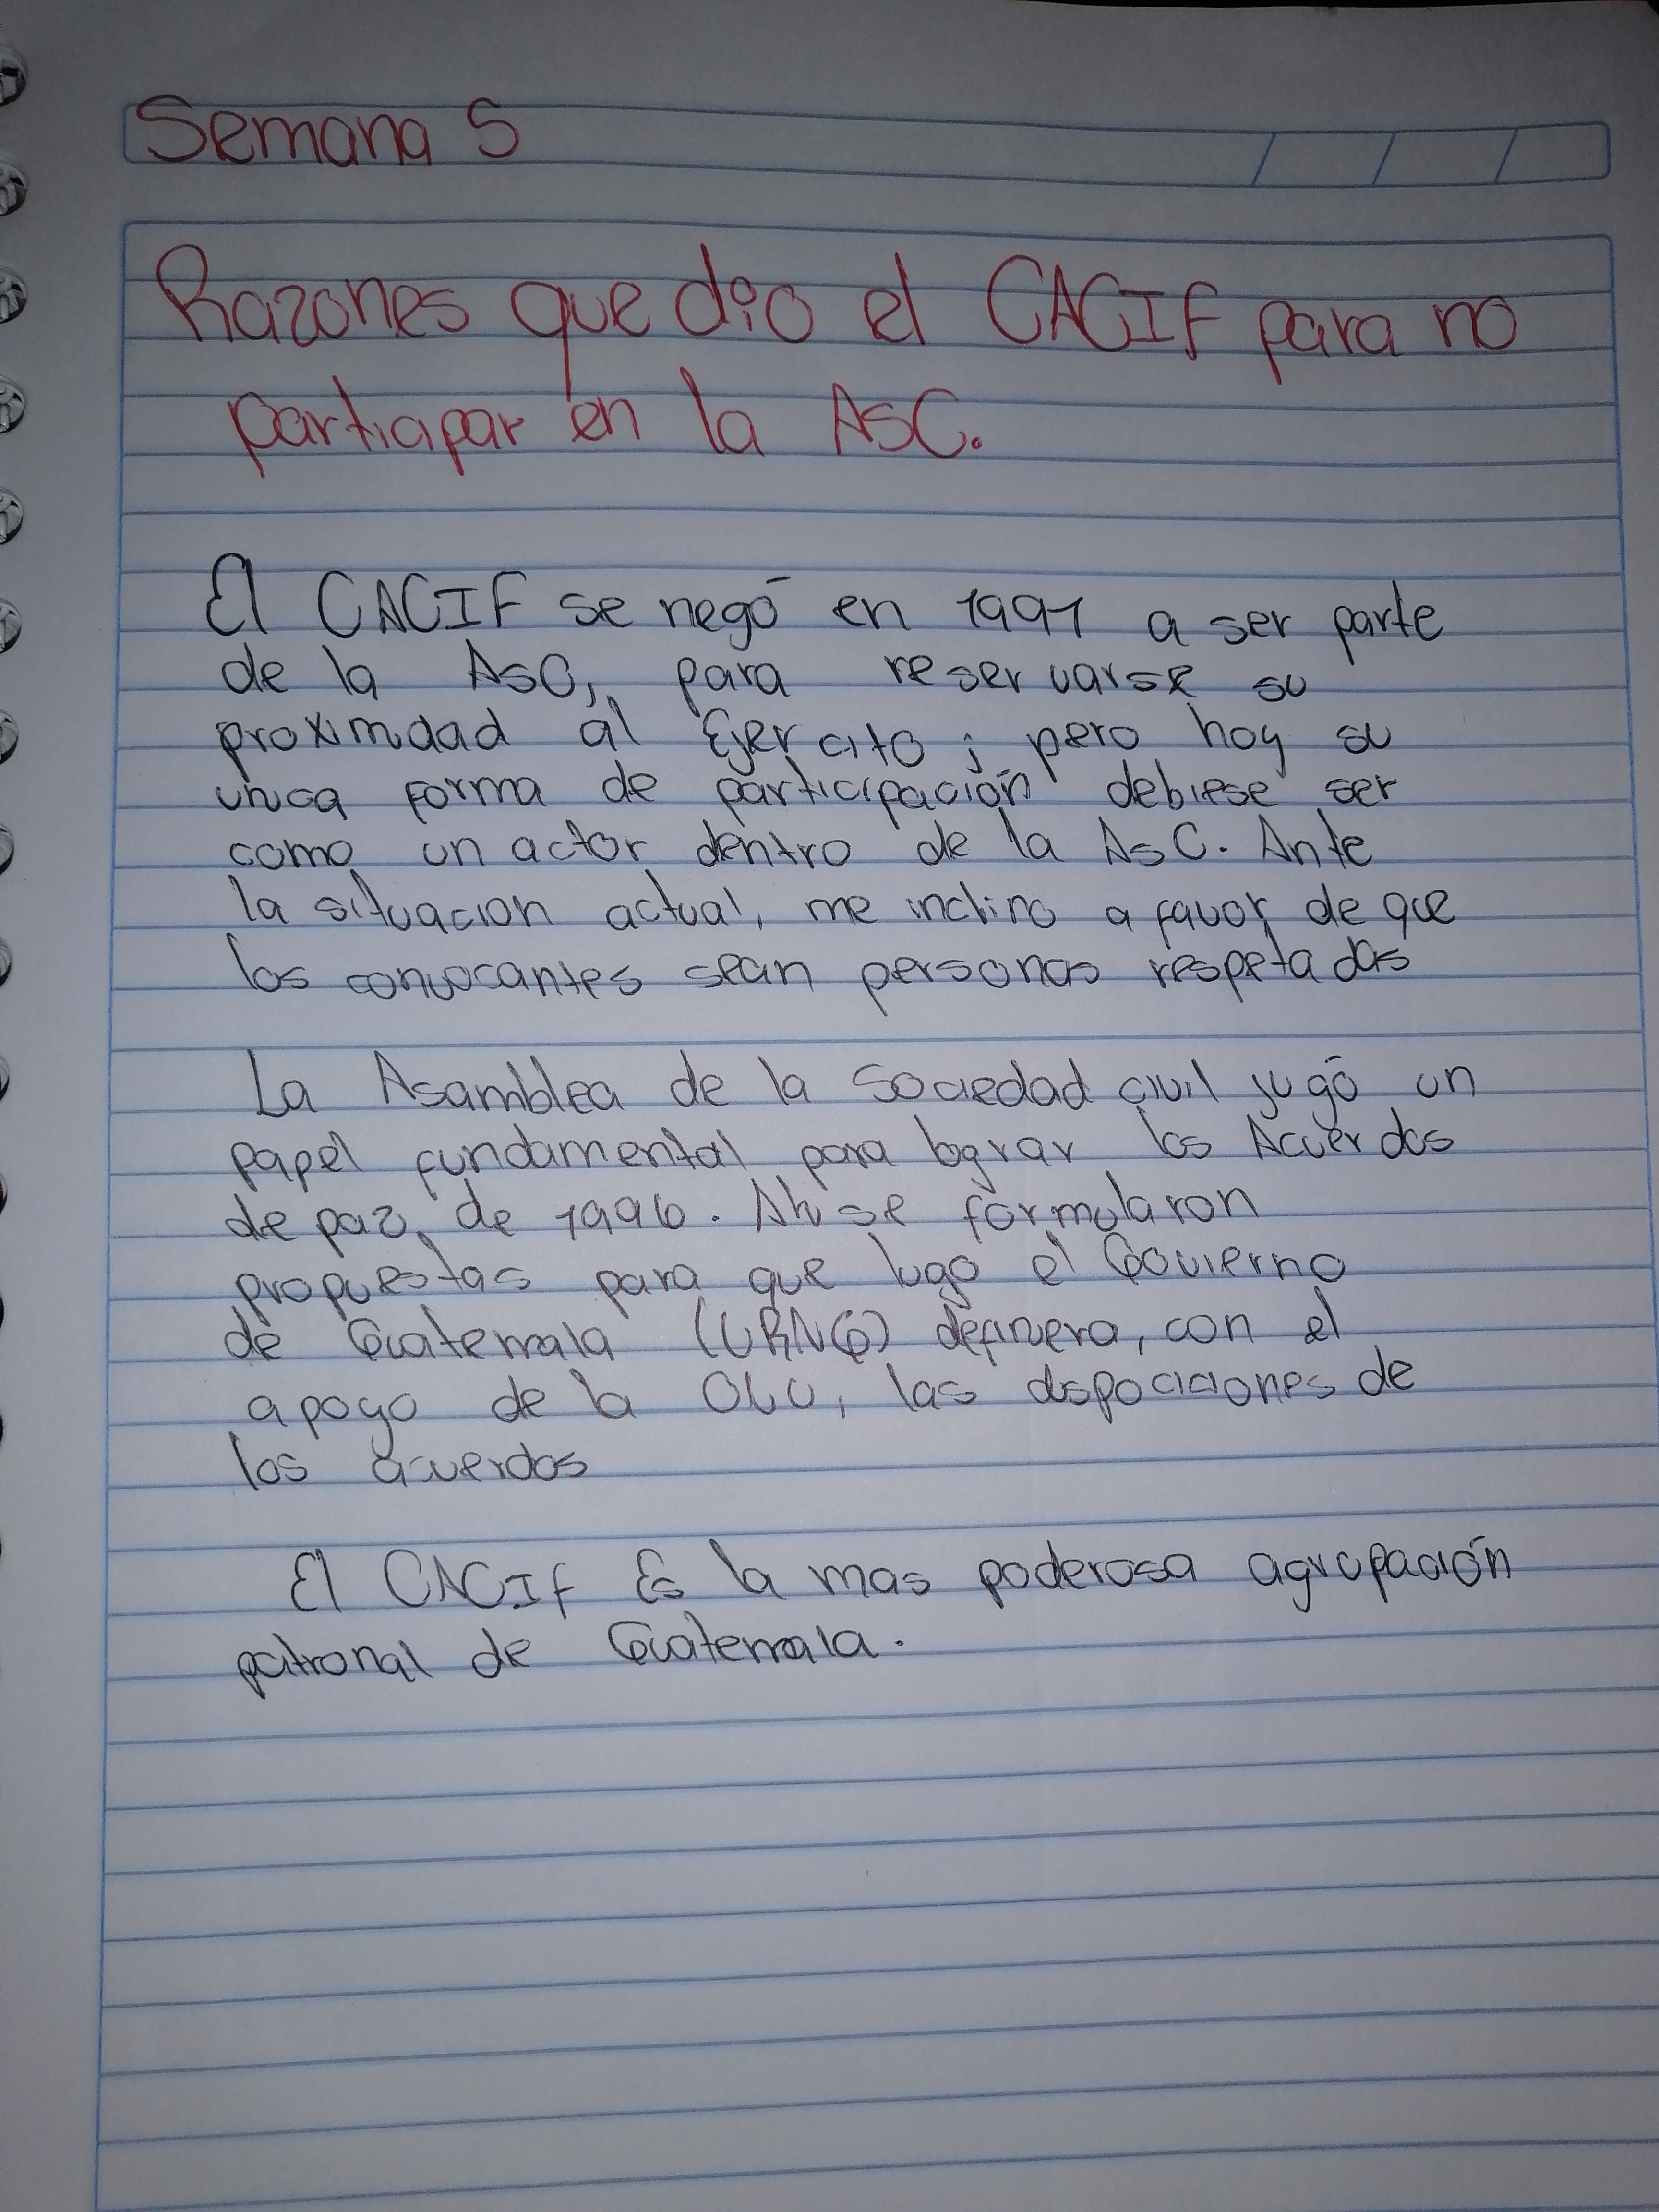 Semana 5
Razones que dio el CACIF para no
participar en la ASC.
El CACIF se negó en 1991 a ser parte
de la ASC, para reservarse su
proximidad al Ejercito; pero hoy su
unica forma de participación debiese ser
como un actor dentro de la ASC. Ante
la situacion actual, me inclino a favor de que
los convocantes sean personas respetadas
La Asamblea de la Sociedad civil jugó un
papel fundamental para lograr los Acuerdos
de paz, de 1996. Ahi se formularon
propuestas para que lugo el Govierno
de Guatemala (URNG) definera, con el
apoyo de la las dispociciones de
los acuerdos
El CACIF Es la mas poderosa agrupación
patronal de Guatemala.